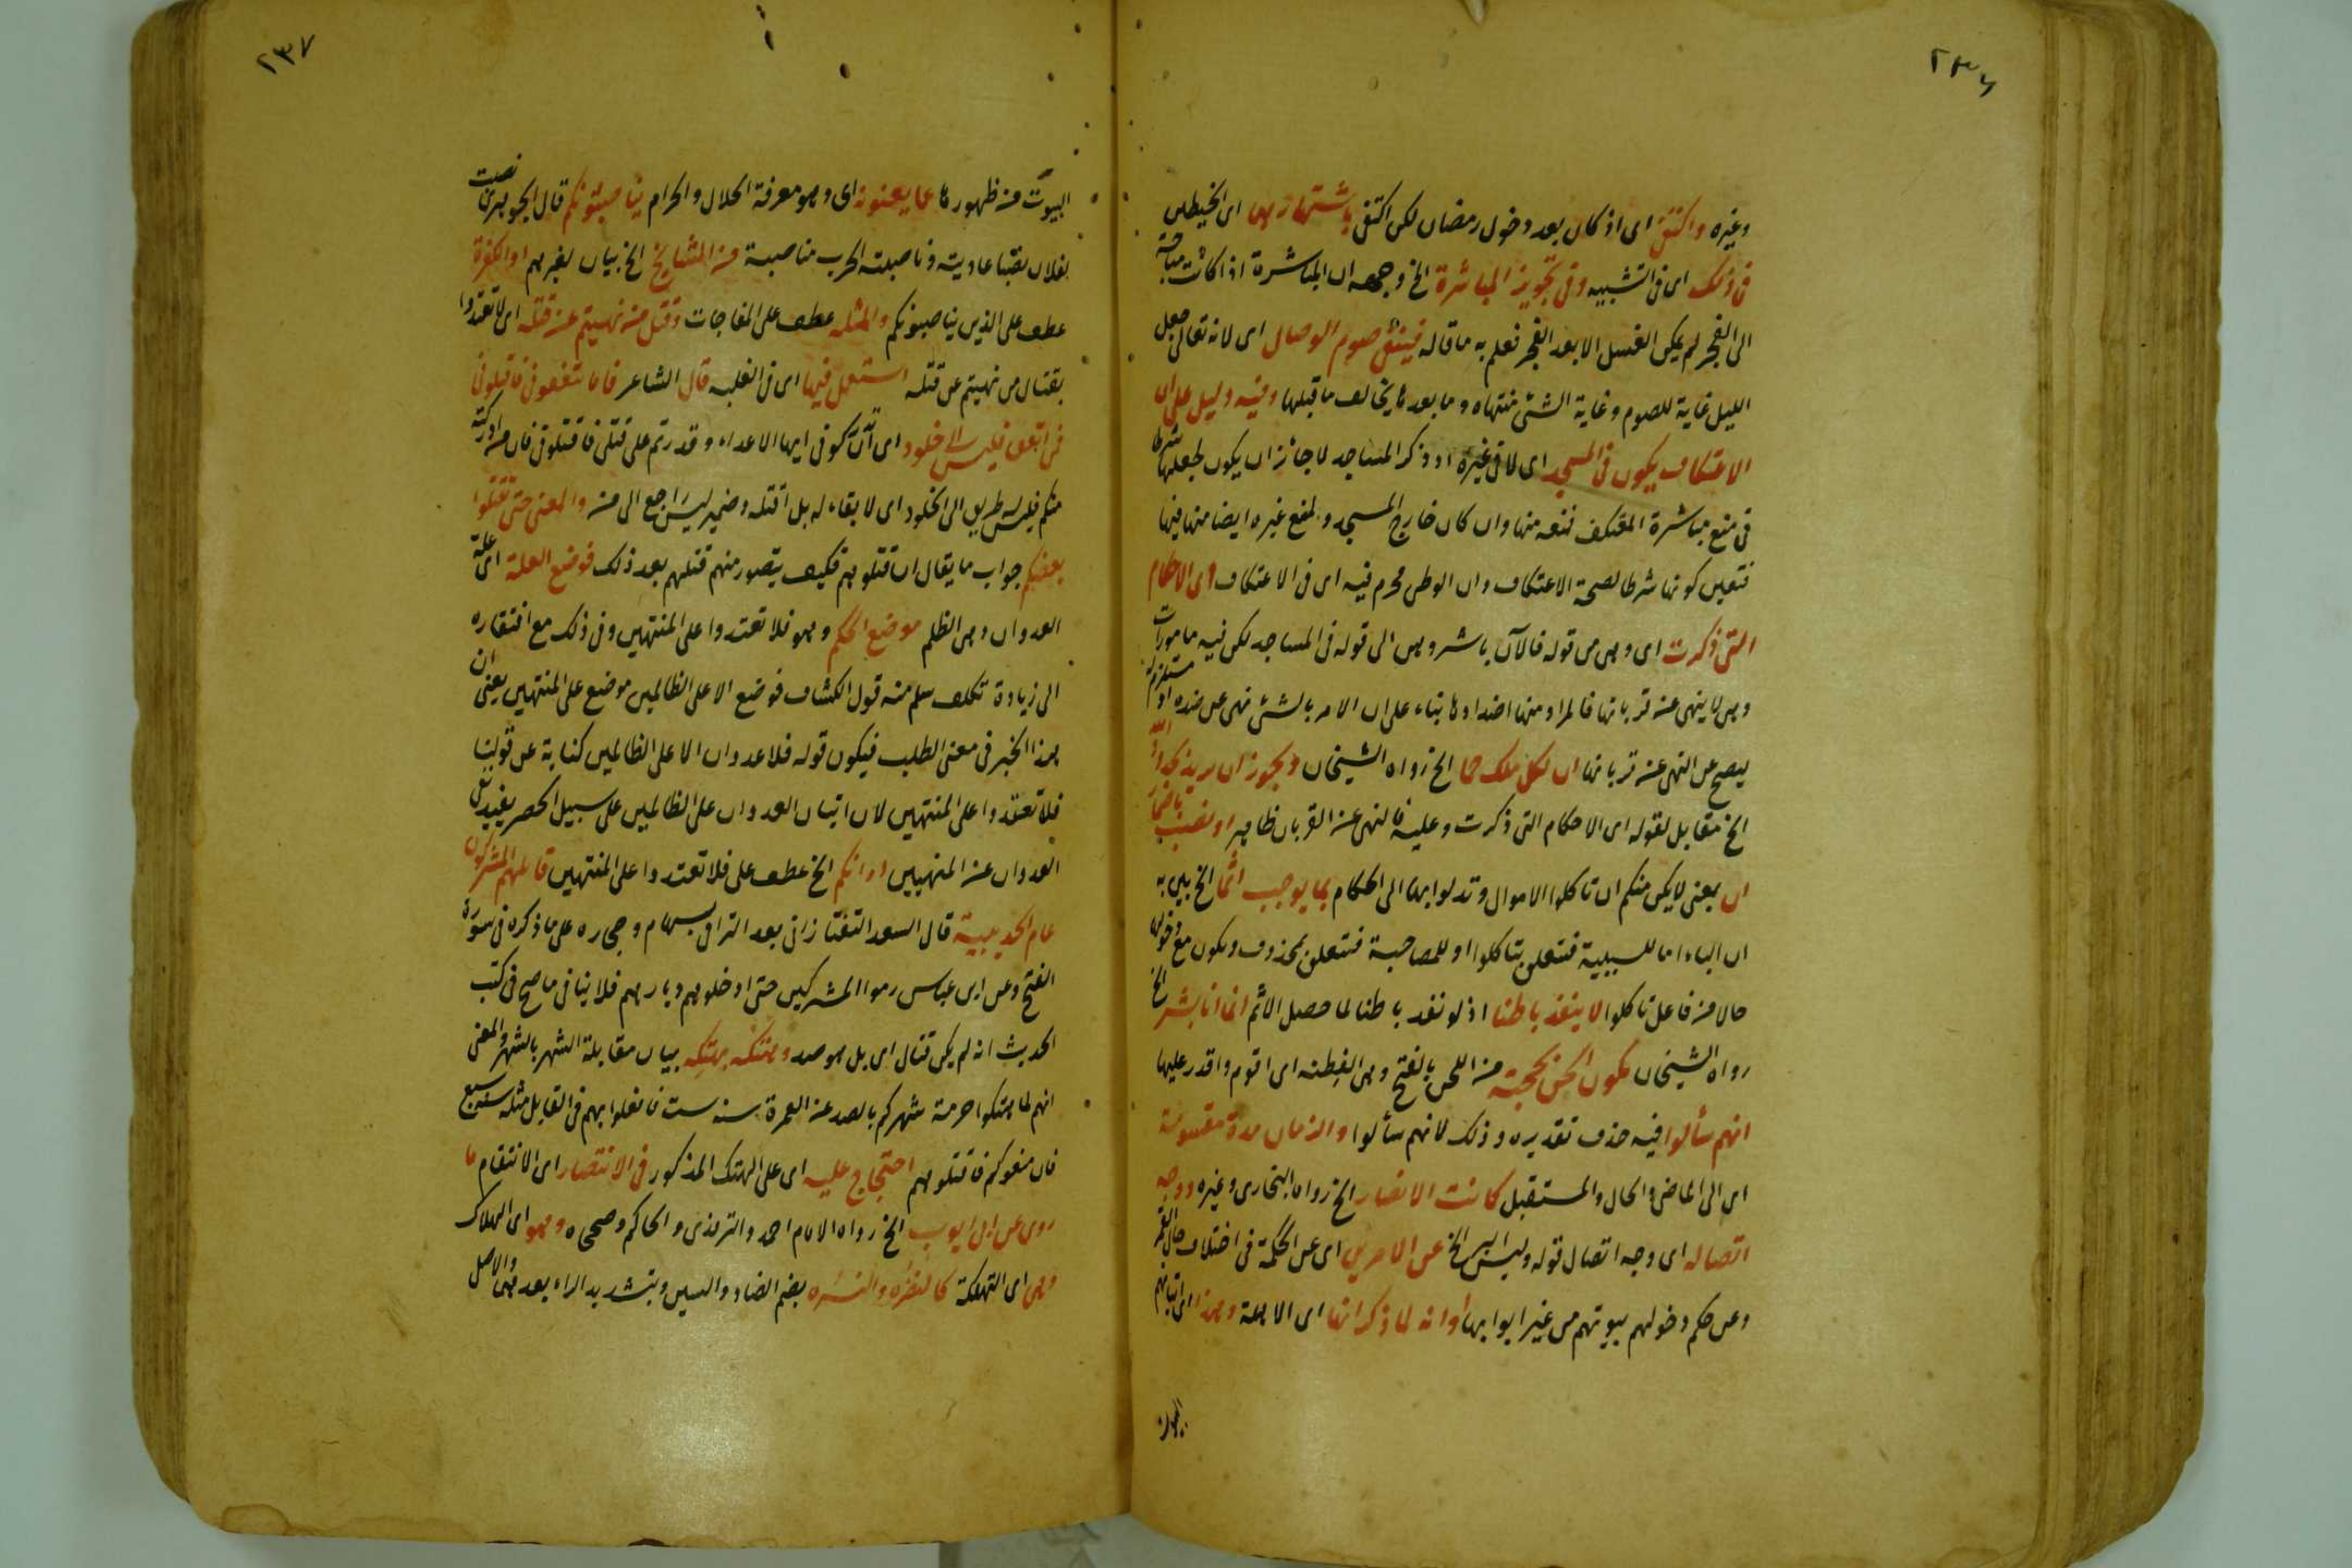 ٢٣٦
وغيره واكتفى اى اذ كان بعد دخول رمضان لكن اكتفى باشتهارهما اى الخيطين
فى ذلك اى فى التشبيه وفى تجويز المباشرة الخ وجهه ان المباشرة اذا كانت مباحة
الى الفجر لم يكن الغسل الا بعد الفجر فعلم به ما قاله فينتفى صوم الوصال اى لانه تعالى جعل
الليل غاية للصوم وغاية الشئ منتهاه وما بعدها يخالف ما قبلها وفيه دليل على ان
الاعتكاف يكون فى المسجد اى لا فى غيره اذ ذكر المساجد لا جائز ان يكون لجعلها شرطا
فى منع مباشرة المعتكف لمنعه منها وان كان خارج المسجد ولمنع غيره ايضا منها فيها
فتعين كونها شرطا لصحة الاعتكاف وان الوطى محرم فيه اى فى الاعتكاف اى الاحكام
التى ذكرت اى وهى من قوله فالآن باشروهن الى قوله فى المساجد لكن فيه مامورات
وهى لا ينهى عن قربانها فالمراد منها اضدادها بناء على ان الامر بالشئ نهى عن ضده او مستلزم له
ليصح عن النهى عن قربانها ان لكل ملك حما الخ رواه الشيخان ويجوز ان يريد بحدود الله
الخ مقابل لقوله اى الاحكام التى ذكرت وعليه فالنهى عن القربان ظاهر او نصب باضمار
ان بمعنى لا يكن منكم ان تاكلوا الاموال وتدلوا بها الى الحكام بما يوجب اثما الخ بين به
ان الباء اما للسببية فتتعلق بتاكلوا او للمصاحبة فتتعلق بمحذوف ويكون مع مدخولها
حالا من فاعل تاكلوا لا ينفذ باطنا اذ لو نفذ باطنا لما حصل الاثم انما انا بشر الخ
رواه الشيخان يكون الحن بحجته من اللحن بالفتح وهى الفطنه اى اقوم واقدر عليها
انهم سألوا فيه حذف تقديره وذلك لانهم سألوا والزمان مدة مقسومة
اى الى الماضى والحال والمستقبل كانت الانصار الخ رواه البخارى وغيره ووجه
اتصاله اى وجه اتصال قوله وليس البر الخ عن الامرين اى عن الحكمة فى اختلاف حال القمر
وعن حكم دخولهم بيوتهم من غير ابوابها او انه لما ذكر انها اى الاهلة وهذا اى اتيانهم
البيوت
٢٣٧
البيوت من ظهورها عما يعنونه اى وهو معرفة الحلال والحرام يناصبونكم قال الجوهرى نصبت
لفلان نصبا عاديته وناصبته الحرب مناصبة من المشايخ الخ بيان لغيرهم او الكفرة
عطف على الذين يناصبونكم والمثله عطف على المفاجات وقتل من نهيتم عن قتله اى لا تعتدوا
بقتال من نهيتم عن قتله استعمل فيها اى فى الغلبه قال الشاعر فاما تثقفونى فاقتلونى
فمن اثقف فليس الى خلود اى ان تدركونى ايها الاعداء وقدرتم على قتلى فاقتلونى فان من ادركته
منكم فليس له طريق الى الخلود اى لا بقاء له بل اقتله وضمير ليس راجع الى من والمعنى حتى تقتلوا
بعضكم جواب ما يقال ان قتلوهم فكيف يتصور منهم قتلهم بعد ذلك فوضع العلة اى علة
العدوان وهى الظلم موضع الحكم وهو فلا تعتدوا على المنتهين وفى ذلك مع افتقاره
الى زيادة تكلف سلم منه قول الكشاف فوضع الا على الظالمين موضع على المنتهين يعنى ان
هذا الخبر فى معنى الطلب فيكون قوله فلا عدوان الا على الظالمين كناية عن قولنا
فلا تعتدوا على المنتهين لان اتيان العدوان على الظالمين على سبيل الحصر يفيد نفى
العدوان عن المنهيين او انكم الخ عطف على فلا تعتدوا على المنتهين قاتلهم المشركون
عام الحديبية قال السعد التفتازانى بعد الترامى بسهام وحجاره على ما ذكره فى سورة
الفتح وعن ابن عباس رموا المشركين حتى ادخلوهم ديارهم فلا ينافى ما صح فى كتب
الحديث انه لم يكن قتال اى بل هو صد وهتكه بهتكه بيان مقابلة الشهر بالشهر والمعنى
انهم لما هتكوا حرمة شهركم بالصد عن العمرة سنه ست فافعلوا بهم فى القابل مثله سنه سبع
فان منعوكم فاقتلوهم احتجاج عليه اى على الهتك المذكور فى الانتصار اى الانتقام ما
روى عن ابى ايوب الخ رواه الامام احمد والترمذى والحاكم وصححاه وهو اى الهلاك
وهى اى التهلكة كالتضره والتسره بضم الضاد والسين وبتشديد الراء بعدهما والاصل